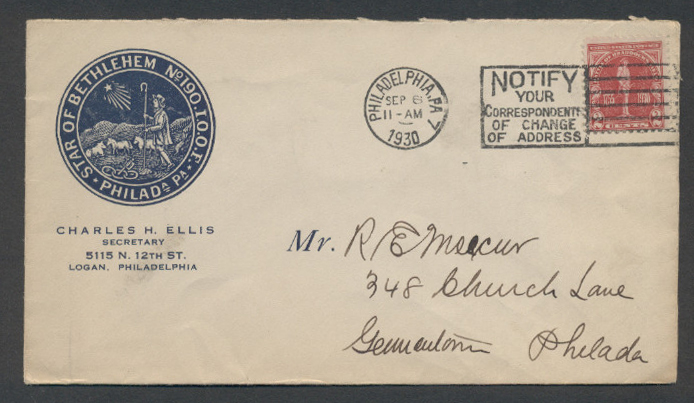 STAR OF BETHLEHEM No 190. I.O.O.F.
PHILADA PA.
CHARLES H. ELLIS
SECRETARY
5115 N. 12TH ST.
LOGAN, PHILADELPHIA
PHILADELPHIA, PA
7
SEP 6
11-AM
1930
NOTIFY
YOUR
CORRESPONDENTS
OF CHANGE
OF ADDRESS
CENTS
Mr. R E
348 Church Lane
Germantown Philada